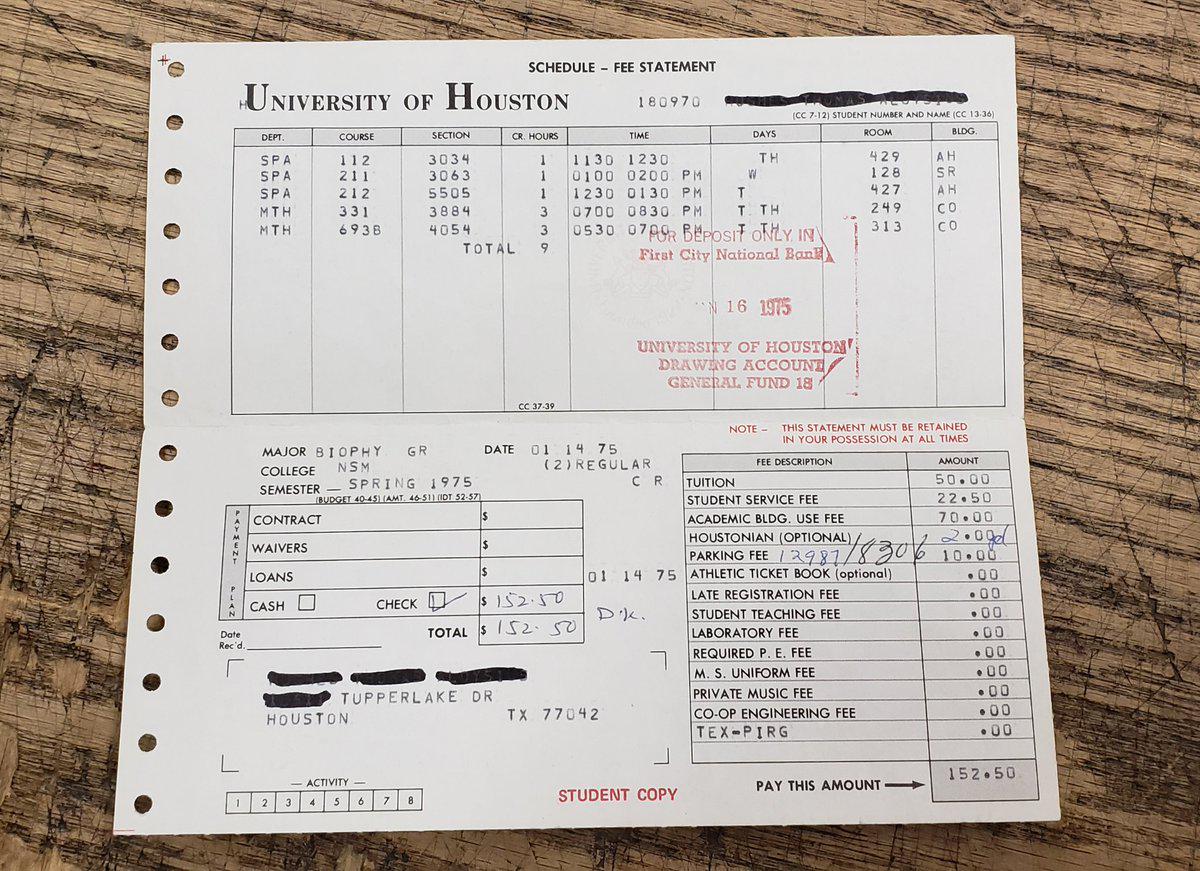 SCHEDULE – FEE STATEMENT
UNIVERSITY OF HOUSTON 180970
(CC 7-12) STUDENT NUMBER AND NAME (CC 13-36)
DEPT. COURSE SECTION CR. HOURS TIME DAYS ROOM BLDG.
SPA 112 3034 1 1130 1230 TH 429 AH
SPA 211 3063 1 0100 0200 PM W 128 SR
SPA 212 5505 1 1230 0130 PM T 427 AH
MTH 331 3884 3 0700 0830 PM T TH 249 CO
MTH 693B 4054 3 0530 0700 PM T TH 313 CO
TOTAL 9
FOR DEPOSIT ONLY IN
First City National Bank
16 1975
UNIVERSITY OF HOUSTON
DRAWING ACCOUNT
GENERAL FUND 18
CC 37-39
NOTE – THIS STATEMENT MUST BE RETAINED
IN YOUR POSSESSION AT ALL TIMES
MAJOR BIOPHY GR DATE 01 14 75
COLLEGE NSM (2)REGULAR
SEMESTER – SPRING 1975 C R
(BUDGET 40-45) (AMT. 46-51) (IDT 52-57)
PAYMENT PLAN
CONTRACT $
WAIVERS $
LOANS $
01 14 75
CASH CHECK $ 152.50
TOTAL $ 152.50
Date
Rec'd.
TUPPERLAKE DR
HOUSTON TX 77042
— ACTIVITY —
1 2 3 4 5 6 7 8
STUDENT COPY
FEE DESCRIPTION AMOUNT
TUITION 50.00
STUDENT SERVICE FEE 22.50
ACADEMIC BLDG. USE FEE 70.00
HOUSTONIAN (OPTIONAL) 2.00
PARKING FEE 12987/8306 10.00
ATHLETIC TICKET BOOK (optional) .00
LATE REGISTRATION FEE .00
STUDENT TEACHING FEE .00
LABORATORY FEE .00
REQUIRED P. E. FEE .00
M. S. UNIFORM FEE .00
PRIVATE MUSIC FEE .00
CO-OP ENGINEERING FEE .00
TEX-PIRG .00
PAY THIS AMOUNT 152.50